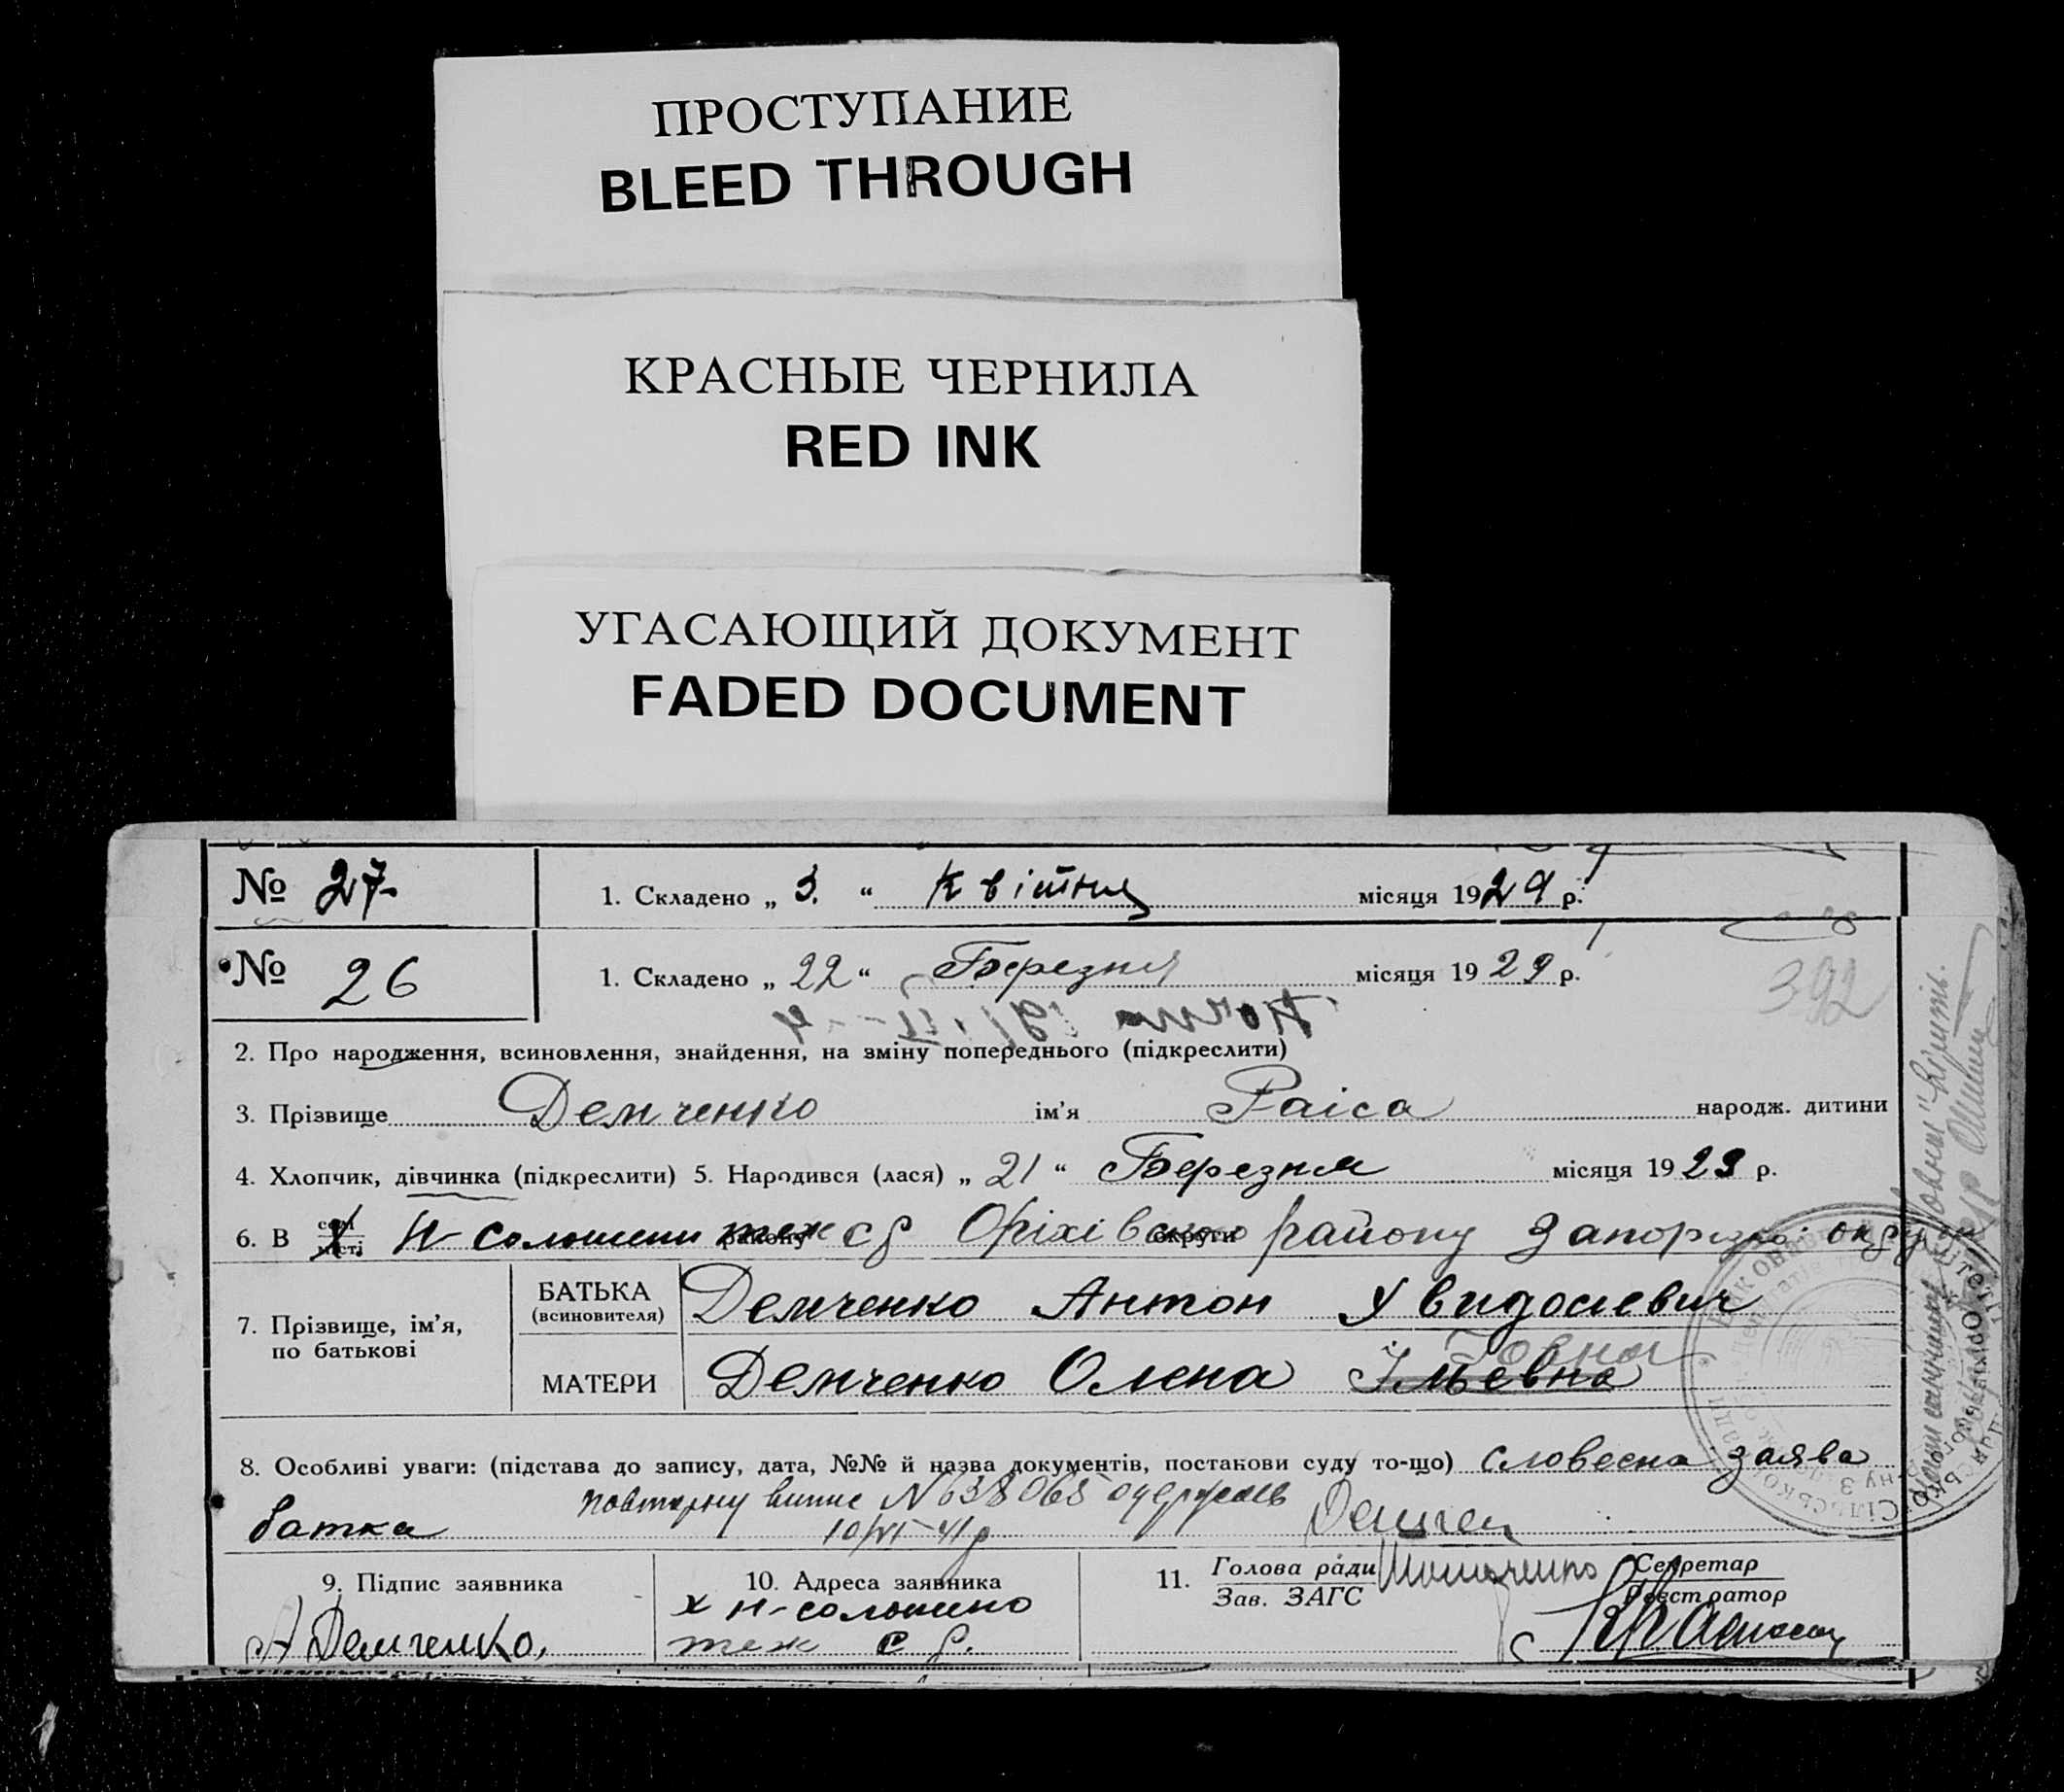 ПРОСТУПАНИЕ
BLEED THROUGH
КРАСНЫЕ ЧЕРНИЛА
RED INK
УГАСАЮЩИЙ ДОКУМЕНТ
FADED DOCUMENT
№ 27 1. Складено „ 3. “ Квітня місяця 1929 р.
№ 26 1. Складено „ 22 “ Березня місяця 1929 р.
392
2. Про народження, всиновлення, знайдення, на зміну попереднього (підкреслити)
3. Прізвище Демченко ім’я Раіса народж. дитини
4. Хлопчик, дівчинка (підкреслити) 5. Народився (лася) „ 21 “ Березня місяця 1929 р.
6. В селі місті Н-Солошени теж с р Оріхівского району Запорізко окру
7. Прізвище, ім’я, по батькові
БАТЬКА (всиновителя) Демченко Антон
МАТЕРИ Демченко Олена Ільєвна
8. Особливі уваги: (підстава до запису, дата, №№ й назва документів, постанови суду то-що) словесна заява
батка
повторну випис N 638065
10/VI-41 р
9. Підпис заявника
А Демченко.
10. Адреса заявника
х Н-Солошино
теж с р.
11. Голова ради Зав. ЗАГС
Секретар Реєстратор